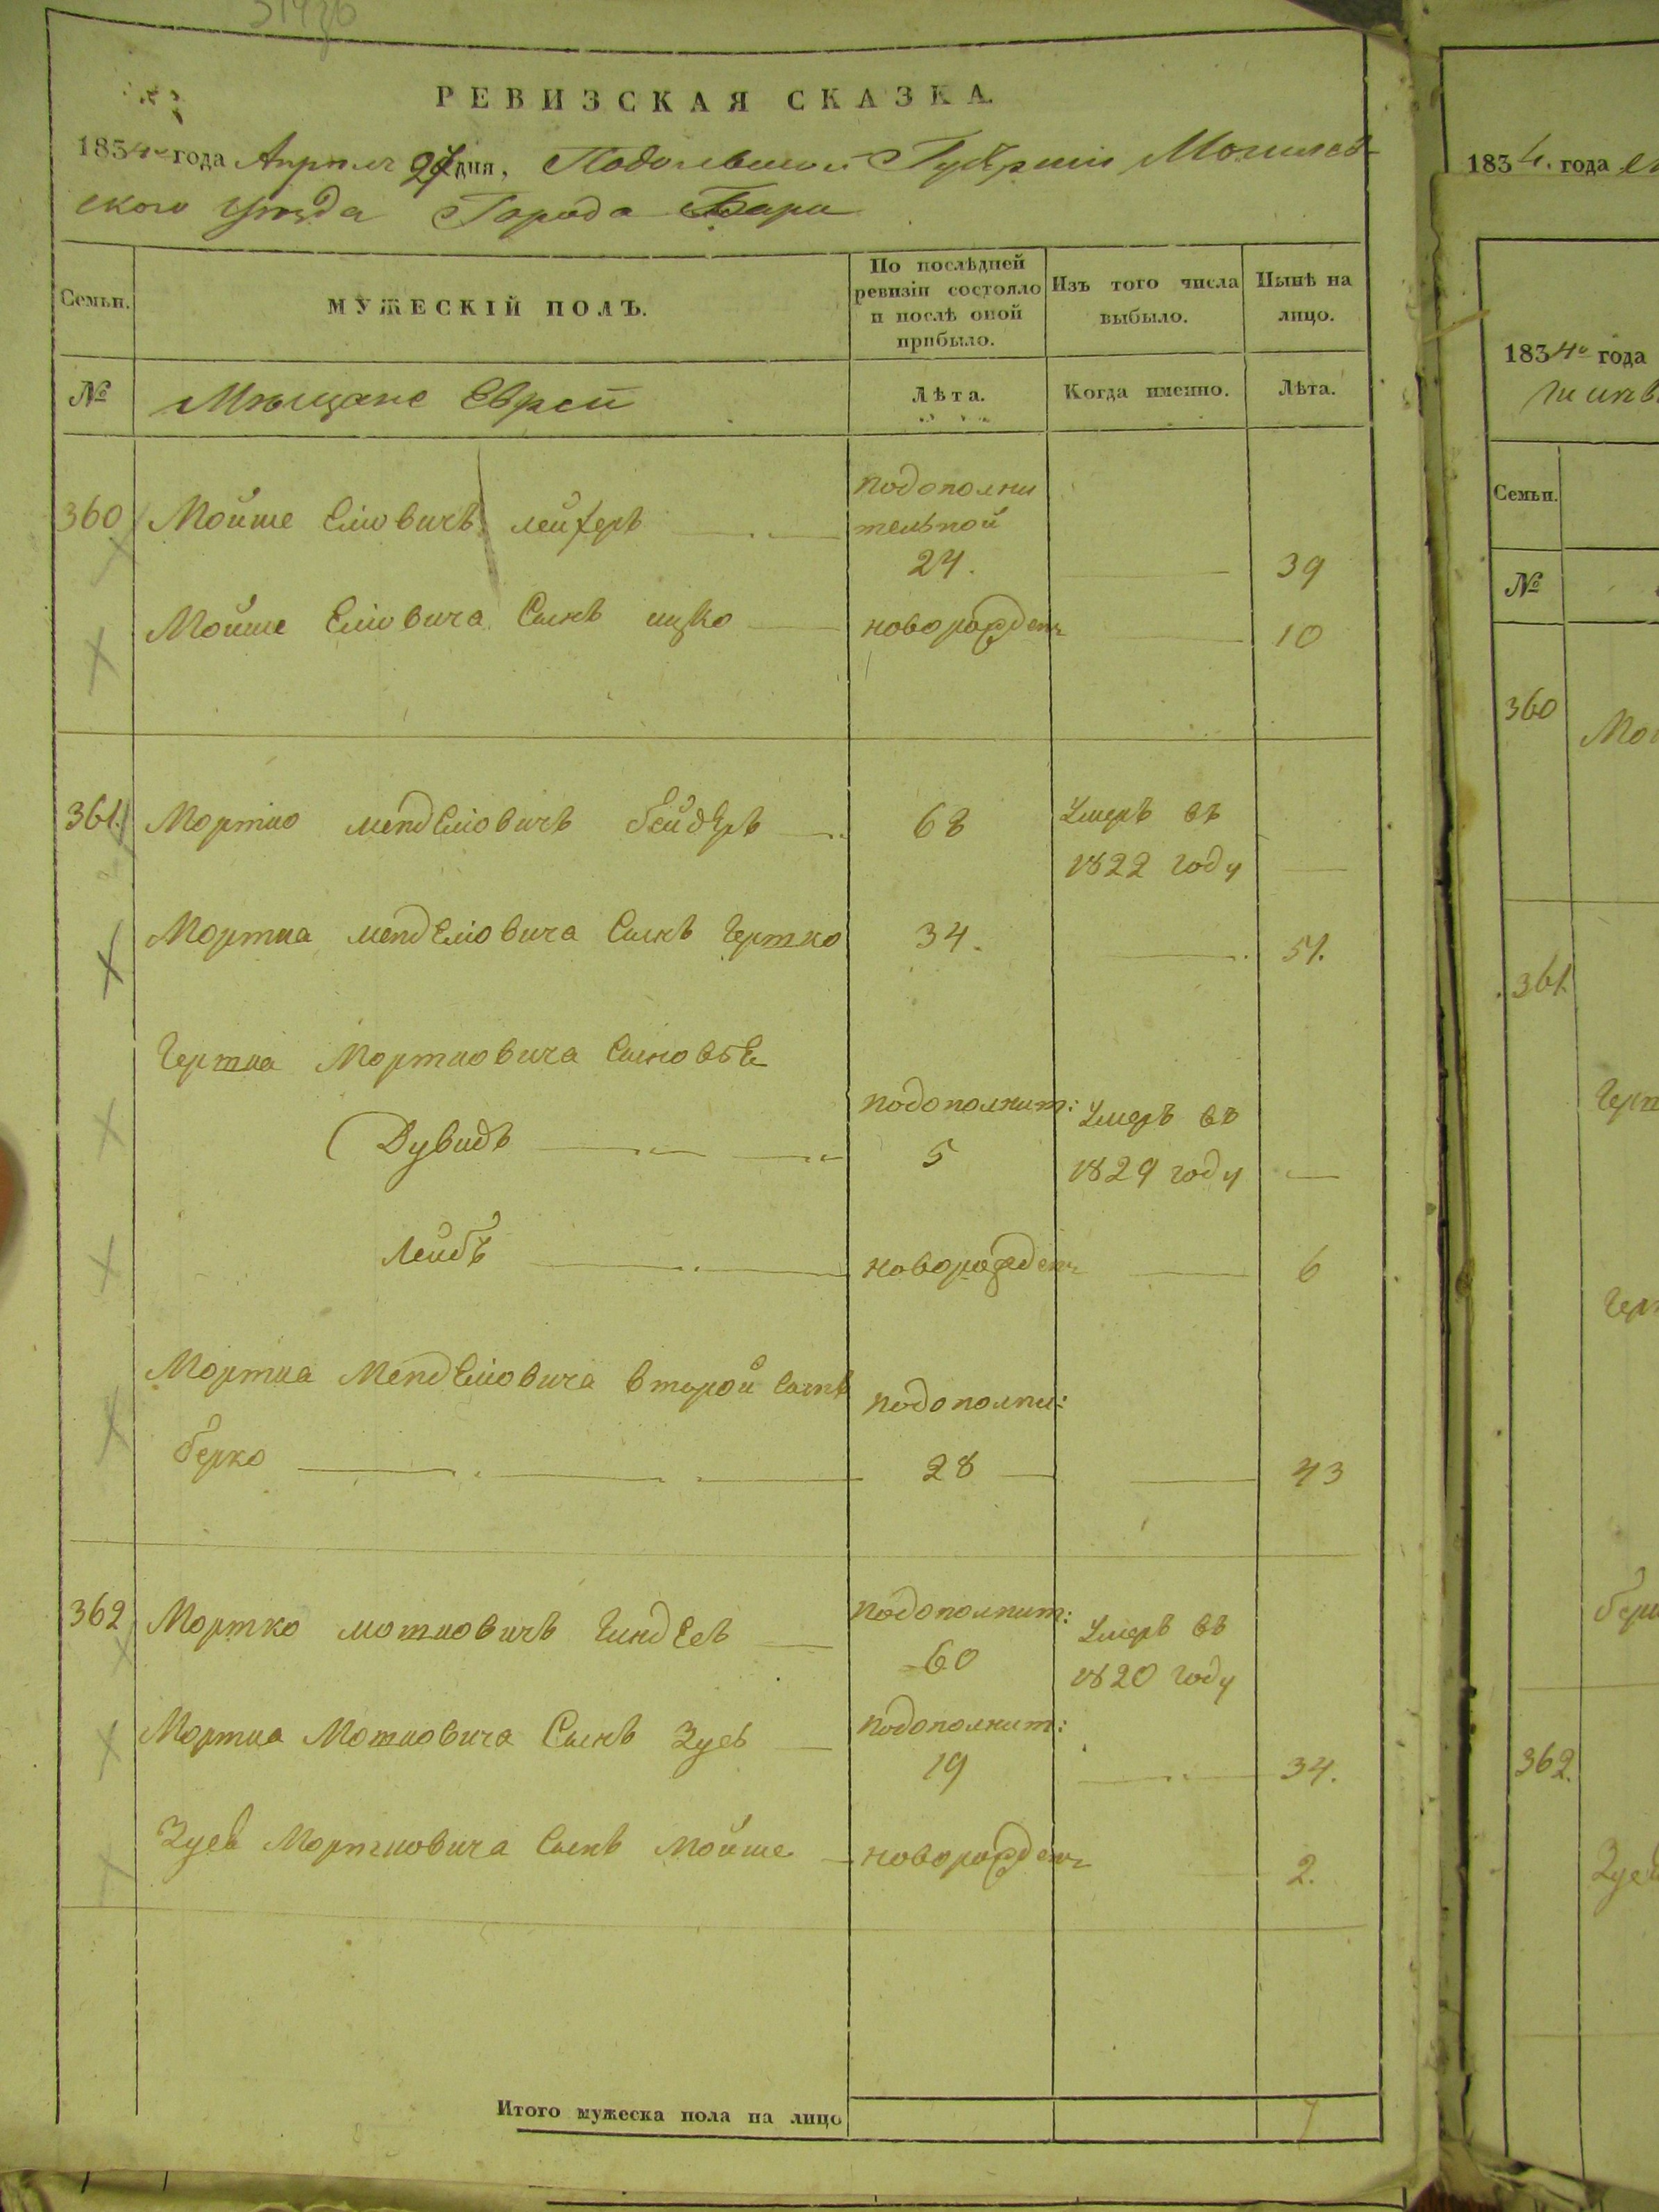 РЕВИЗСКАЯ СКАЗКА.
1834го года Апреля 27 дня, Подольской Губернiи Могилев-
ского уѣзда Города Бара
Семьи.
МУЖЕСКIЙ ПОЛЪ.
По послѣдней
ревизiи состояло
и послѣ оной
прибыло.
Изъ того числа
выбыло.
Нынѣ на
лицо.
№
Мѣщане Евреи
Лѣта.
Когда именно.
Лѣта.
подополни
360 Мойше Елiовичъ
тельной
24. 39
Мойше Елiовича Сынъ ицко новорожден 10
361. Мортко менделiовичъ бейдеръ 68 Умеръ въ
1822 году
Мортка менделiовича Сынъ Гершко 34. 51.
Гершка Мортковича Сыновье
подополнит: Умеръ въ
Дувидъ 5
1829 году
Лейбъ новорожден 6
Мортка Менделiовича второй Сынъ
подополни:
берко 28 43
362 Мортко мотковичъ подополнит: Умеръ въ
60
1820 году
Мортка Мотковича Сынъ Зусь подополнит:
19 34.
Зуся Мортковича Сынъ Мойше новорожден 2.
Итого мужеска пола на лицо 7
1834. года
1834го года
Семьи.
№
360
Мо
361.
Гер
Гер
бер
362.
Зус